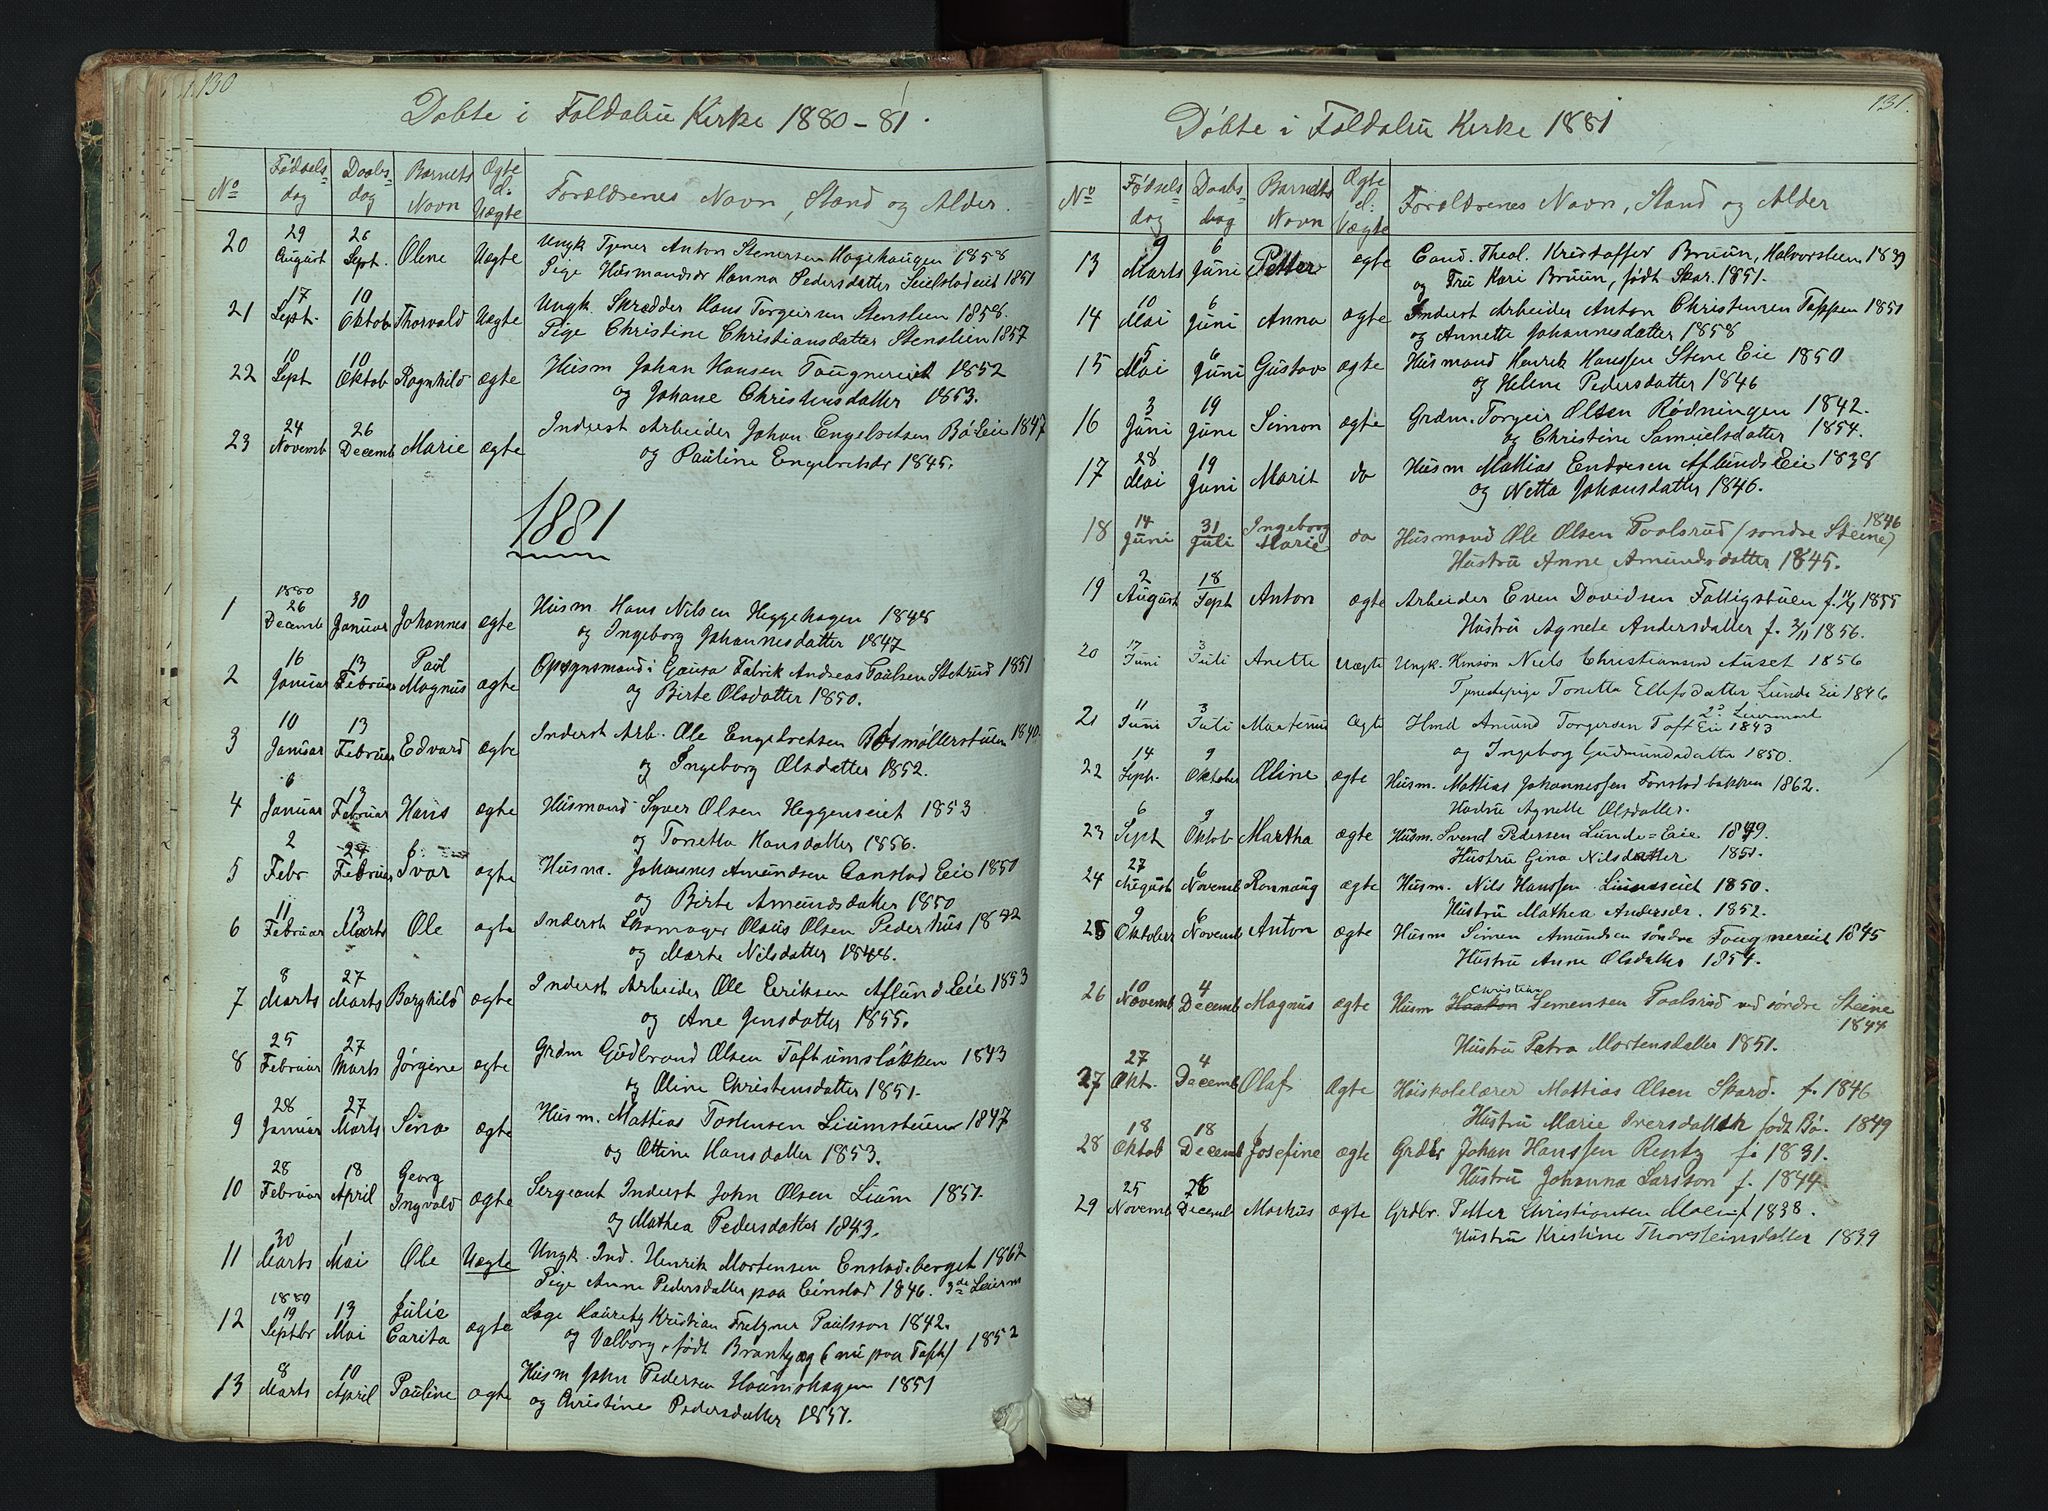 130
Døbte i Foldalens Kirke 1880-81.
No Fødsels- dag Daabs- dag Barnets Navn Ægte el. Uægte Forældrenes Navn, Stand og Alder.
20 29 August 26 Sept. Oline Uægte Ungk Tjener Anton Stenersen Hagehaugen 1858
Pige Husmandsdr Hanna Pedersdatter Seielstadeiet 1851
21 17 Sept. 10 Oktob Thorvald Uægte Ungk. Skrædder Hans Torgeirsen Stenslien 1858.
Pige Christine Christiansdatter Stenslien 1857
22 10 Sept 10 Oktob Ragnhild ægte Husm Johan Hansen Fougnereiet 1852
og Johane Christensdatter 1853.
23 24 Novemb 26 Decemb Marie ægte Inderst Arbeider Johan Engebretsen Bø Eie 1847
og Pauline Engebretsdr 1845.
1881
1 1880 26 Decemb 30 Januar Johannes ægte Husm Hans Nilsen Heggehagen 1848
og Ingeborg Johannesdatter 1847
2 16 Januar 13 Februar Paul Magnus ægte Opsynsmand i Fabrik Andreas Paulsen 1851
og Birte Olsdatter 1850.
3 10 Januar 13 Februar Edvard ægte Inderst Arb. Ole Engebretsen Bøsmøllerstuen 1840.
og Ingeborg Olsdatter 1852.
4 6 Januar 13 Februar Hans ægte Husmand Syver Olsen Heggenseiet 1853
og Tonetta Hansdatter 1856.
5 2 Febr 27 Februar Ivar ægte Husm. Johannes Amundsen Eie 1850
og Birte Amundsdatter 1850
6 11 Februar 13 Marts Ole ægte Inderst Skomager Olaus Olsen Pedershus
og Marte Nilsdatter 1848.
7 8 Marts 27 Marts Borghild ægte Inderst Arbeider Ole Eriksen Aflund Eie 1853
og Ane Jensdatter 1855.
8 25 Februar 27 Marts Jørgine ægte Grdm Gudbrand Olsen Toftumsløkken 1843
og Oline Christensdatter 1851.
9 28 Januar 27 Marts Sina ægte Husm. Mattias Tostensen Liumstuen 1847
og Ottine Hansdatter 1853.
10 28 Februar 18 April Georg Ingvald ægte Sergeant Inderst John Olsen Lium 1851
og Mathea Pedersdatter 1843.
11 30 Marts 1 Mai Ole Uægte Ungk. Ind. Henrik Mortensen Enstadberget 1862
Pige Anne Pedersdatter paa Einstad 1846. 3de Leierm
12 1880 19 Septbr 13 Mai Julie Carita ægte Læge Lauritz Kristian Fretzner Paulsson 1842.
og Valborg, født 1852
13 8 Marts 10 April Pauline ægte Husm John Pedersen Haumshagen 1851
og Christine Pedersdatter 1851.
131.
Døbte i Foldalens Kirke 1881
No Fødsels dag Daabs- dag Barnets Navn Ægte el: Uægte Forældrenes Navn, Stand og Alder
13 9 Marts 6 Juni Petter ægte Cand. Theol. Kristoffer Bruun, Halvorsliem 1839
og Fru Kari Bruun, født Skar. 1851.
14 10 Mai 6 Juni Anna ægte Inderst Arbeider Anton Christensen Toppen 1851
og Annette Johannesdatter 1858
15 5 Mai 6 Juni Gustav ægte Husmand Henrik Hanssen Stene Eie 1850
og Helene Pedersdatter 1846
16 3 Juni 19 Juni Simon ægte Grdm. Torgeir Olsen Rødningen 1842.
og Christine Samuelsdatter 1854.
17 28 Mai 19 Juni Marit do Husm Mattias Endresen Aflunds Eie 1838
og Netta Johansdatter 1846.
18 14 Juni 31 Juli Ingeborg Marie do Husmand Ole Olsen Poalsrud (søndre Steine) 1846
Hustru Anne Amundsdatter 1845.
19 2 August 18 Sept Anton ægte Arbeider Even Davidsen Fattigstuen f. 1855
Hustru Agnete Andersdatter f. 2/11 1856.
20 17 Juni 3 Juli Anette Uægte Ungk. Niels Christiansen Auset 1856
Tjenestepige Tonetta Ellefsdatter Lunde Eie 1846
21 11 Juni 3 Juli Martinus Ægte Hmd Amund Torgersen Toft Eie 1843
og Ingeborg Gudmundsdatter 1850.
22 14 Sept. 9 Oktober Oline ægte Husm. Mattias Johannessen Fonstadbakken 1862.
Hustru Agnette Olsdatter.
23 6 Sept 9 Oktob Martha ægte Husm. Svend Pedersen Lunde=Eie 1849.
Hustru Gina Nilsdatter 1851.
24 27 August 6 Novemb Ronnaug ægte Husm. Nils Hanssen 1850.
Hustru Mathea Andersdr. 1852.
25 9 Oktober 6 Novemb Anton ægte Husm Simen Amundsen søndre Fougnereiet 1845
Hustru Anne Olsdatter 1854.
26 10 Novemb 4 Decemb Magnus ægte Husm Christian Simensen Poalsrud ved søndre Steine
1844
Hustru Petra Mortensdatter 1851.
27 27 Okt. 4 Decemb Olaf Ægte Høiskolelærer Mattias Olsen Skard. f. 1846
Hustru Marie Iversdatter født Bø. 1849
28 18 Oktob 18 Decemb Josefine ægte Grdbr Johan Hanssen Rentz f. 1831.
Hustru Johanna Larsson f. 1844.
29 25 Novemb 26 Decemb Markus ægte Grdbr. Petter Christiansen Moen f 1838.
Hustru Kristine Thorsteinsdatter 1839